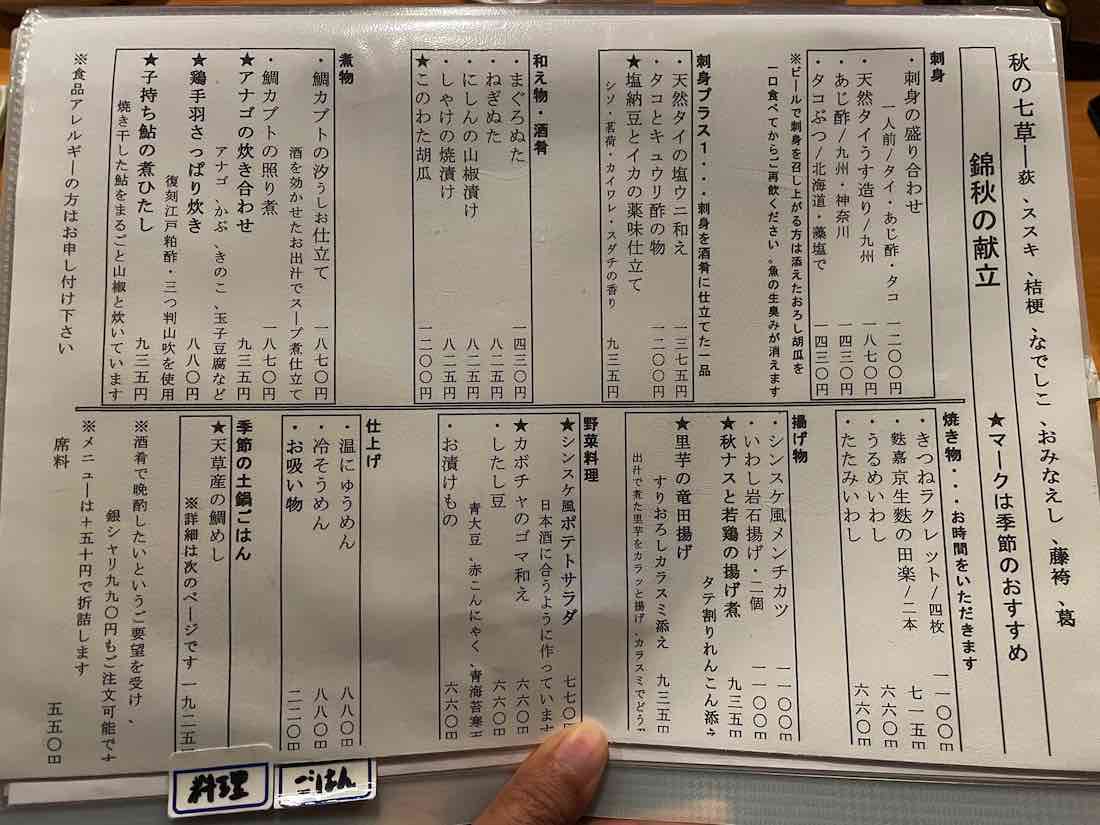 秋の七草ー荻、ススキ、桔梗、なでしこ、おみなえし、藤袴、葛
錦秋の献立
★マークは季節のおすすめ
刺身
・刺身の盛り合わせ
一人前/タイ・あじ酢・タコ 一二〇〇円
・天然タイうす造り/九州 一八七〇円
・あじ酢/九州・神奈川 九三五円
・タコぶつ/北海道・藻塩で 一四三〇円
※ビールで刺身を召し上がる方は添えたおろし胡瓜を
一口食べてからご再飲ください。魚の生臭みが消えます
刺身プラス1・・・刺身を酒肴に仕立てた一品
・天然タイの塩ウニ和え 一三七五円
・タコとキュウリ酢の物 一二〇〇円
★塩納豆とイカの薬味仕立て
シソ・茗荷・カイワレ・スダチの香り 九三五円
和え物・酒肴
・まぐろぬた 一四三〇円
・ねぎぬた 八二五円
・にしんの山椒漬け 八二五円
・しゃけの焼漬け 八二五円
★このわた胡瓜 一二〇〇円
煮物
・鯛カブトの汐うしお仕立て 一八七〇円
酒を効かせたお出汁でスープ煮仕立て
・鯛カブトの照り煮 一八七〇円
★アナゴの炊き合わせ 九三五円
アナゴ、かぶ、きのこ、玉子豆腐など
★鶏手羽さっぱり炊き 八八〇円
復刻江戸粕酢・三つ判山吹を使用
★子持ち鮎の煮ひたし 九三五円
焼き干した鮎をまるごと山椒と炊いています
※食品アレルギーの方はお申し付け下さい
焼き物・・・お時間をいただきます
・きつねラクレット/四枚 一一〇〇円
・麩嘉京生麩の田楽/二本 七一五円
・うるめいわし 六六〇円
・たたみいわし 六六〇円
揚げ物
・シンスケ風メンチカツ 一一〇〇円
・いわし岩石揚げ・二個 一一〇〇円
★秋ナスと若鶏の揚げ煮 九三五円
タテ割りれんこん添え
★里芋の竜田揚げ
すりおろしカラスミ添え 九三五円
出汁で煮た里芋をカラッと揚げ、カラスミでどうぞ
野菜料理
★シンスケ風ポテトサラダ 七七〇円
日本酒に合うように作っています
★カボチャのゴマ和え 六六〇円
・したし豆 六六〇円
青大豆、赤こんにゃく、青海苔寒天
・お漬けもの 六六〇円
仕上げ
・温にゅうめん 八八〇円
・冷そうめん 八八〇円
・お吸い物 二二〇円
季節の土鍋ごはん
★天草産の鯛めし
※詳細は次のページです 一九二五円
※酒肴で晩酌したいというご要望を受け、
銀シャリ九九〇円もご注文可能です
※メニューは+五十円で折詰します
席料 五五〇円
料理
ごはん